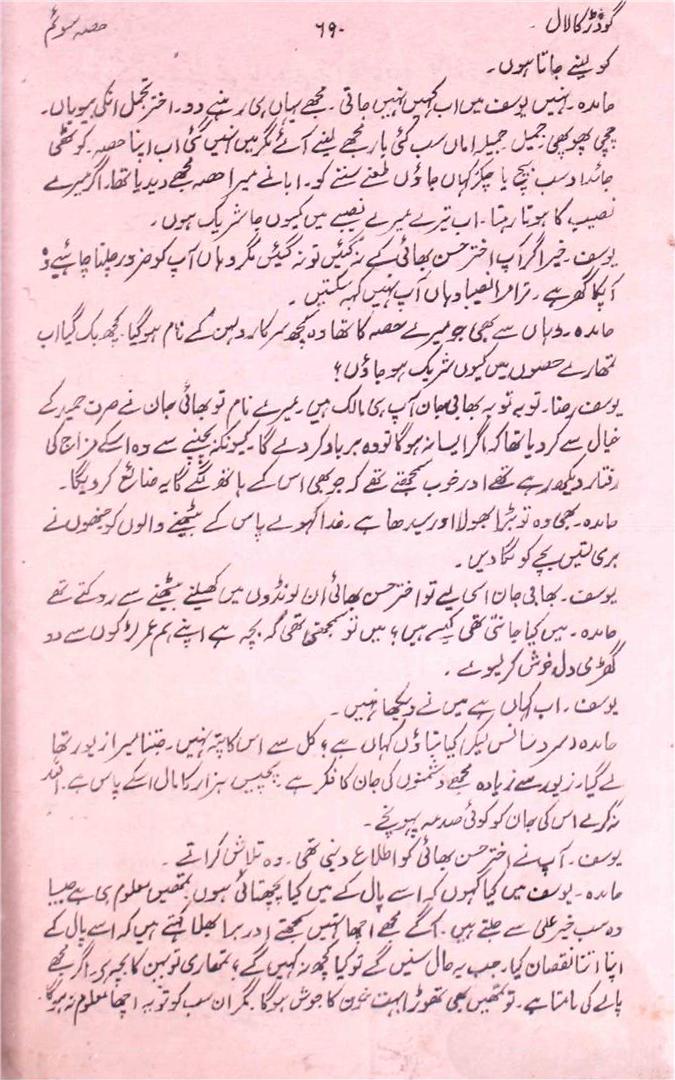 گوڈر کا لال - ۶۹۰ حصہ سوئم
کو لینے جاتا ہوں۔
حامدہ۔ نہیں یوسف میں اب کہیں نہیں جاتی۔ مجھے یہاں ہی رہنے دو۔ اختر تجمل انکی بیویاں۔
چچی پھوپھی جمیل جمیلہ اماں سب کئی بار مجھے لینے آئے مگر میں نہیں گئی اب اپنا حصہ۔ کوٹھی
جائداد سب بیچ یا چکر کہاں جاؤں طعنے سننے کو۔ ابا نے میرا حصہ مجھے دیدیا تھا۔ اگر میرے
نصیب کا ہوتا رہتا۔ اب تیرے میرے نصیبے میں کیوں جا شریک ہوں۔
یوسف۔ خیر اگر آپ اختر حسن بھائی کے نہ گئیں تو نہ گئیں مگر وہاں آپ کو ضرور چلنا چاہئیے وہ
آپکا گھر ہے۔ ترا مرا نصیبا وہاں آپ نہیں کہہ سکتیں۔
حامدہ۔ وہاں سے بھی جو میرے حصہ کا تھا وہ کچھ سرکار دلہن کے نام ہوگیا۔ کچھ بک گیا اب
تمھارے حصوں میں کیوں شریک ہو جاؤں؟
یوسف رضا۔ توبہ توبہ بھابی جان آپ ہی مالک ہیں۔ میرے نام تو بھائی جان نے صرف حمید کے
خیال سے کردیا تھا کہ اگر ایسا نہ ہوگا تو وہ برباد کردے گا۔ کیونکہ بچپنے سے وہ اسکے مزاج کی
رفتار دیکھ رہے تھے اور خوب سمجھتے تھے کہ جو بھی اس کے ہاتھ لگے گا یہ ضائع کردیگا۔
حامدہ۔ بھی وہ تو بڑا بھولا اور سیدھا ہے۔ خدا کھوئے پاس کے بیٹھنے والوں کو جنھوں نے
بری لتیں بچے کو لگادیں۔
یوسف۔ بھابی جان اسی لیے تو اختر حسن بھائی ان لونڈوں میں کھیلنے بیٹھنے سے روکتے تھے
حامدہ۔ میں کیا جانتی تھی کیسے ہیں؟ میں تو سمجھتی تھی کہ بچہ ہے اپنے ہم عمر لڑکوں سے دو
گھڑی دل خوش کرلیوے۔
یوسف۔ اب کہاں ہے میں نے دیکھا نہیں۔
حامدہ (سرد سانس لیکر) کیا بتاؤں کہاں ہے؟ کل سے اس کا پتہ نہیں۔ جتنا میرا زیور تھا
لے گیا۔ زیور سے زیادہ مجھے دشمنوں کی جان کا فکر ہے۔ پچیس ہزار کا مال اسکے پاس ہے۔ اللہ
نہ کرے اس کی جان کو کوئی صدمہ پہونچے۔
یوسف۔ آپ نے اختر حسن بھائی کو اطلاع دینی تھی۔ وہ تلاش کراتے۔
حامدہ۔ یوسف میں کیا کہوں کہ اسے پال کے میں کیا پچھتائی ہوں تمھیں معلوم ہی ہے جیسا
وہ سب خیر علی سے جلتے ہیں۔ آگے مجھے اچھا نہیں سمجھتے اور برا بھلا کہتے ہیں کہ اسے پال کے
اپنا اتنا نقصان کیا۔ جب یہ حال سنیں گے تو کیا کچھ نہ کہیں گے؛ تمھاری تو بہن کا بچہ ہی۔ اگر مجھے
پالے کی مامتا ہے۔ تو تمھیں بھی تھوڑا بہت خون کا جوش ہوگا۔ مگر ان سب کو تو یہ اچھا معلوم نہ ہوگا۔